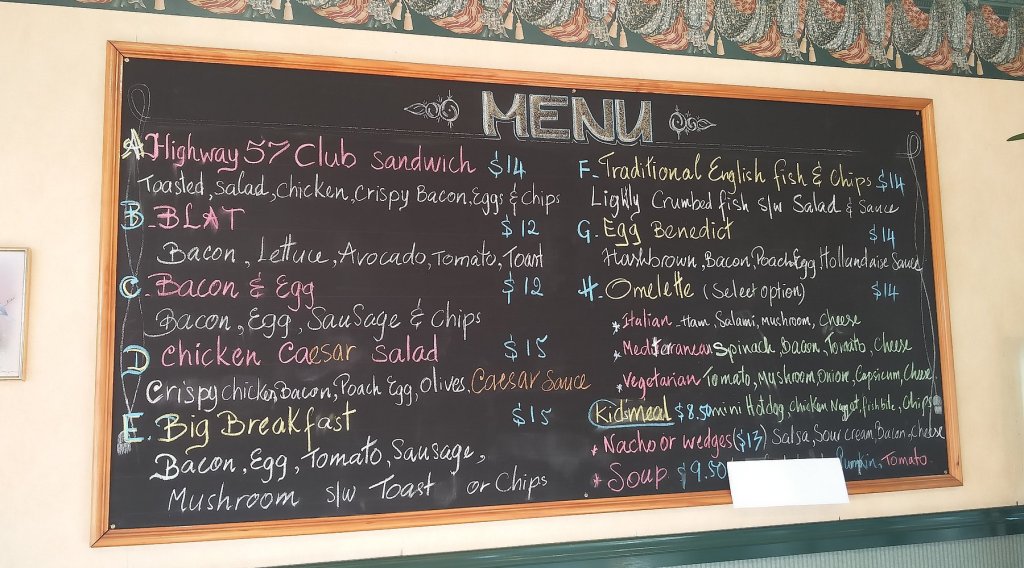 MENU
A Highway 57 Club Sandwich $14
Toasted, Salad, Chicken, Crispy Bacon, Eggs & Chips
B. BLAT $12
Bacon, Lettuce, Avocado, Tomato, Toast
C. Bacon & Egg $12
Bacon, Egg, Sausage & Chips
D Chicken Caesar Salad $15
Crispy chicken, Bacon, Poach Egg, Olives, Caesar Sauce
E. Big Breakfast $15
Bacon, Egg, Tomato, Sausage,
Mushroom s/w Toast or Chips
F. Traditional English fish & Chips $14
Lightly Crumbed fish s/w Salad & Sauce
G. Egg Benedict $14
Hashbrown, Bacon, Poach Egg Hollandaise Sauce
H. Omelette (Select option) $14
* Italian - Ham, Salami, mushroom, Cheese
* Mediterranean Spinach, Bacon, Tomato, Cheese
* Vegetarian Tomato, Mushroom Onion, Capsicum, Cheese
Kidmeal $8.50 mini Hotdog, Chicken Nugget, fishbite, Chips
* Nacho or wedges ($13) Salsa, Sour cream, Bacon, Cheese
* Soup $9.50 Pumpkin, Tomato